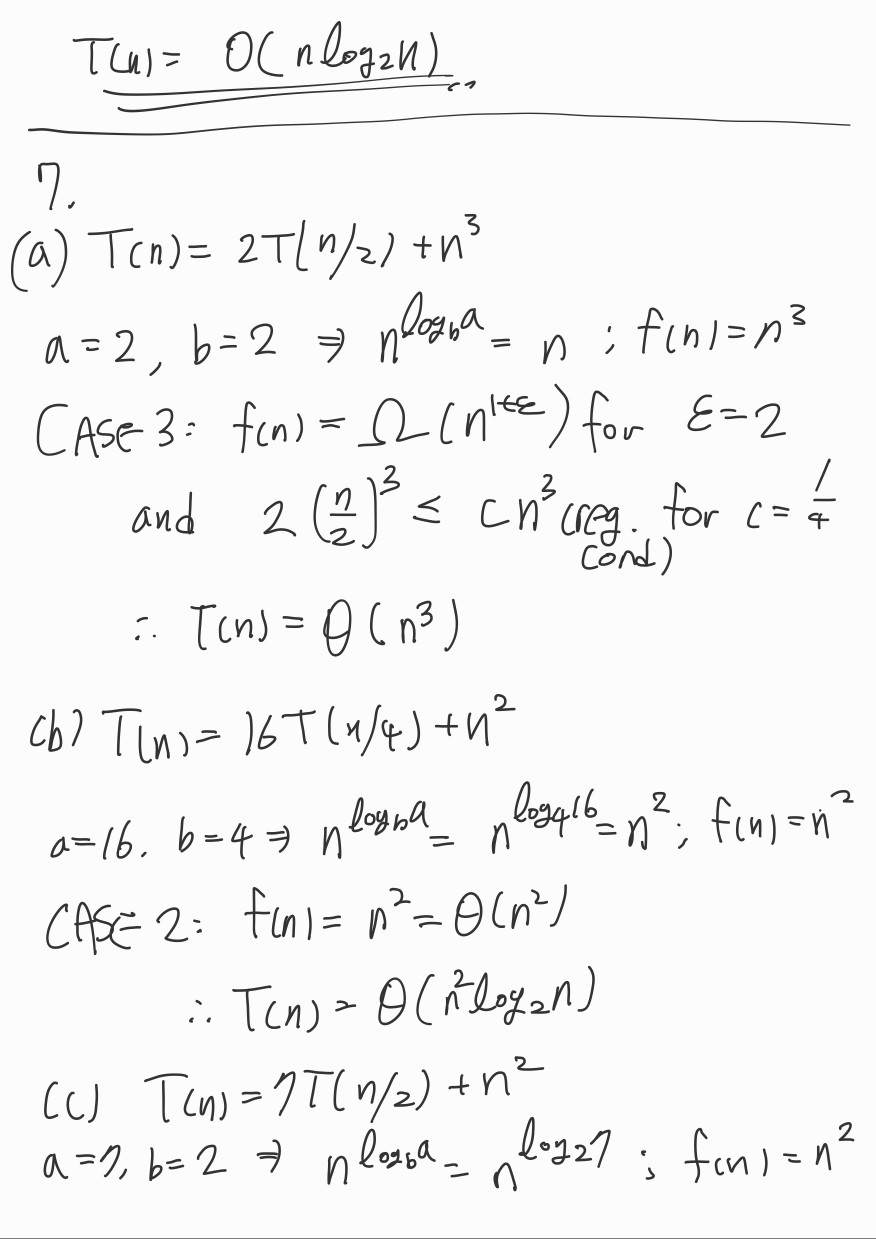 T(n) = O(n log₂n)
7.
(a) T(n) = 2T(n/2) + n³
a = 2, b = 2 ⇒ n^(log_b a) = n ; f(n) = n³
CASE 3: f(n) = Ω(n^(1+ε)) for ε = 2
and 2(n/2)³ ≤ cn³ (reg. cond) for c = 1/4
∴ T(n) = θ(n³)
(b) T(n) = 16T(n/4) + n²
a=16. b=4 ⇒ n^(log_b a) = n^(log₄16) = n² ; f(n) = n²
CASE 2: f(n) = n² = θ(n²)
∴ T(n) = θ(n² log₂n)
(c) T(n) = 7T(n/2) + n²
a=7, b=2 ⇒ n^(log_b a) = n^(log₂7) ; f(n) = n²